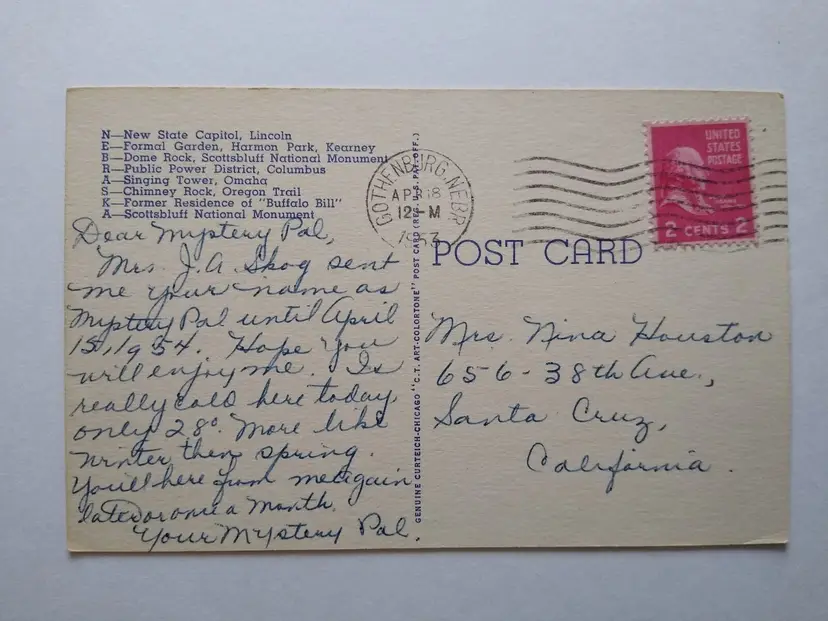 N—New State Capitol, Lincoln
E—Formal Garden, Harmon Park, Kearney
B—Dome Rock, Scottsbluff National Monument
R—Public Power District, Columbus
A—Singing Tower, Omaha
S—Chimney Rock, Oregon Trail
K—Former Residence of "Buffalo Bill"
A—Scottsbluff National Monument
Dear Mystery Pal,
Mrs. J. A. Skog sent
me your name as
Mystery Pal until April
15, 1954. Hope you
will enjoy me. Is
really cold here today,
only 28°. More like
winter then spring.
You'll here from me again
later once a month.
Your Mystery Pal.
GENUINE CURTEICH-CHICAGO "C. T. ART-COLORTONE" POST CARD (REG. U. S. PAT. OFF.)
GOTHENBURG, NEBR
APR 18
12—M
1953
UNITED
STATES
POSTAGE
2 CENTS 2
POST CARD
Mrs. Nina Houston
656-38th Ave.,
Santa Cruz,
California.